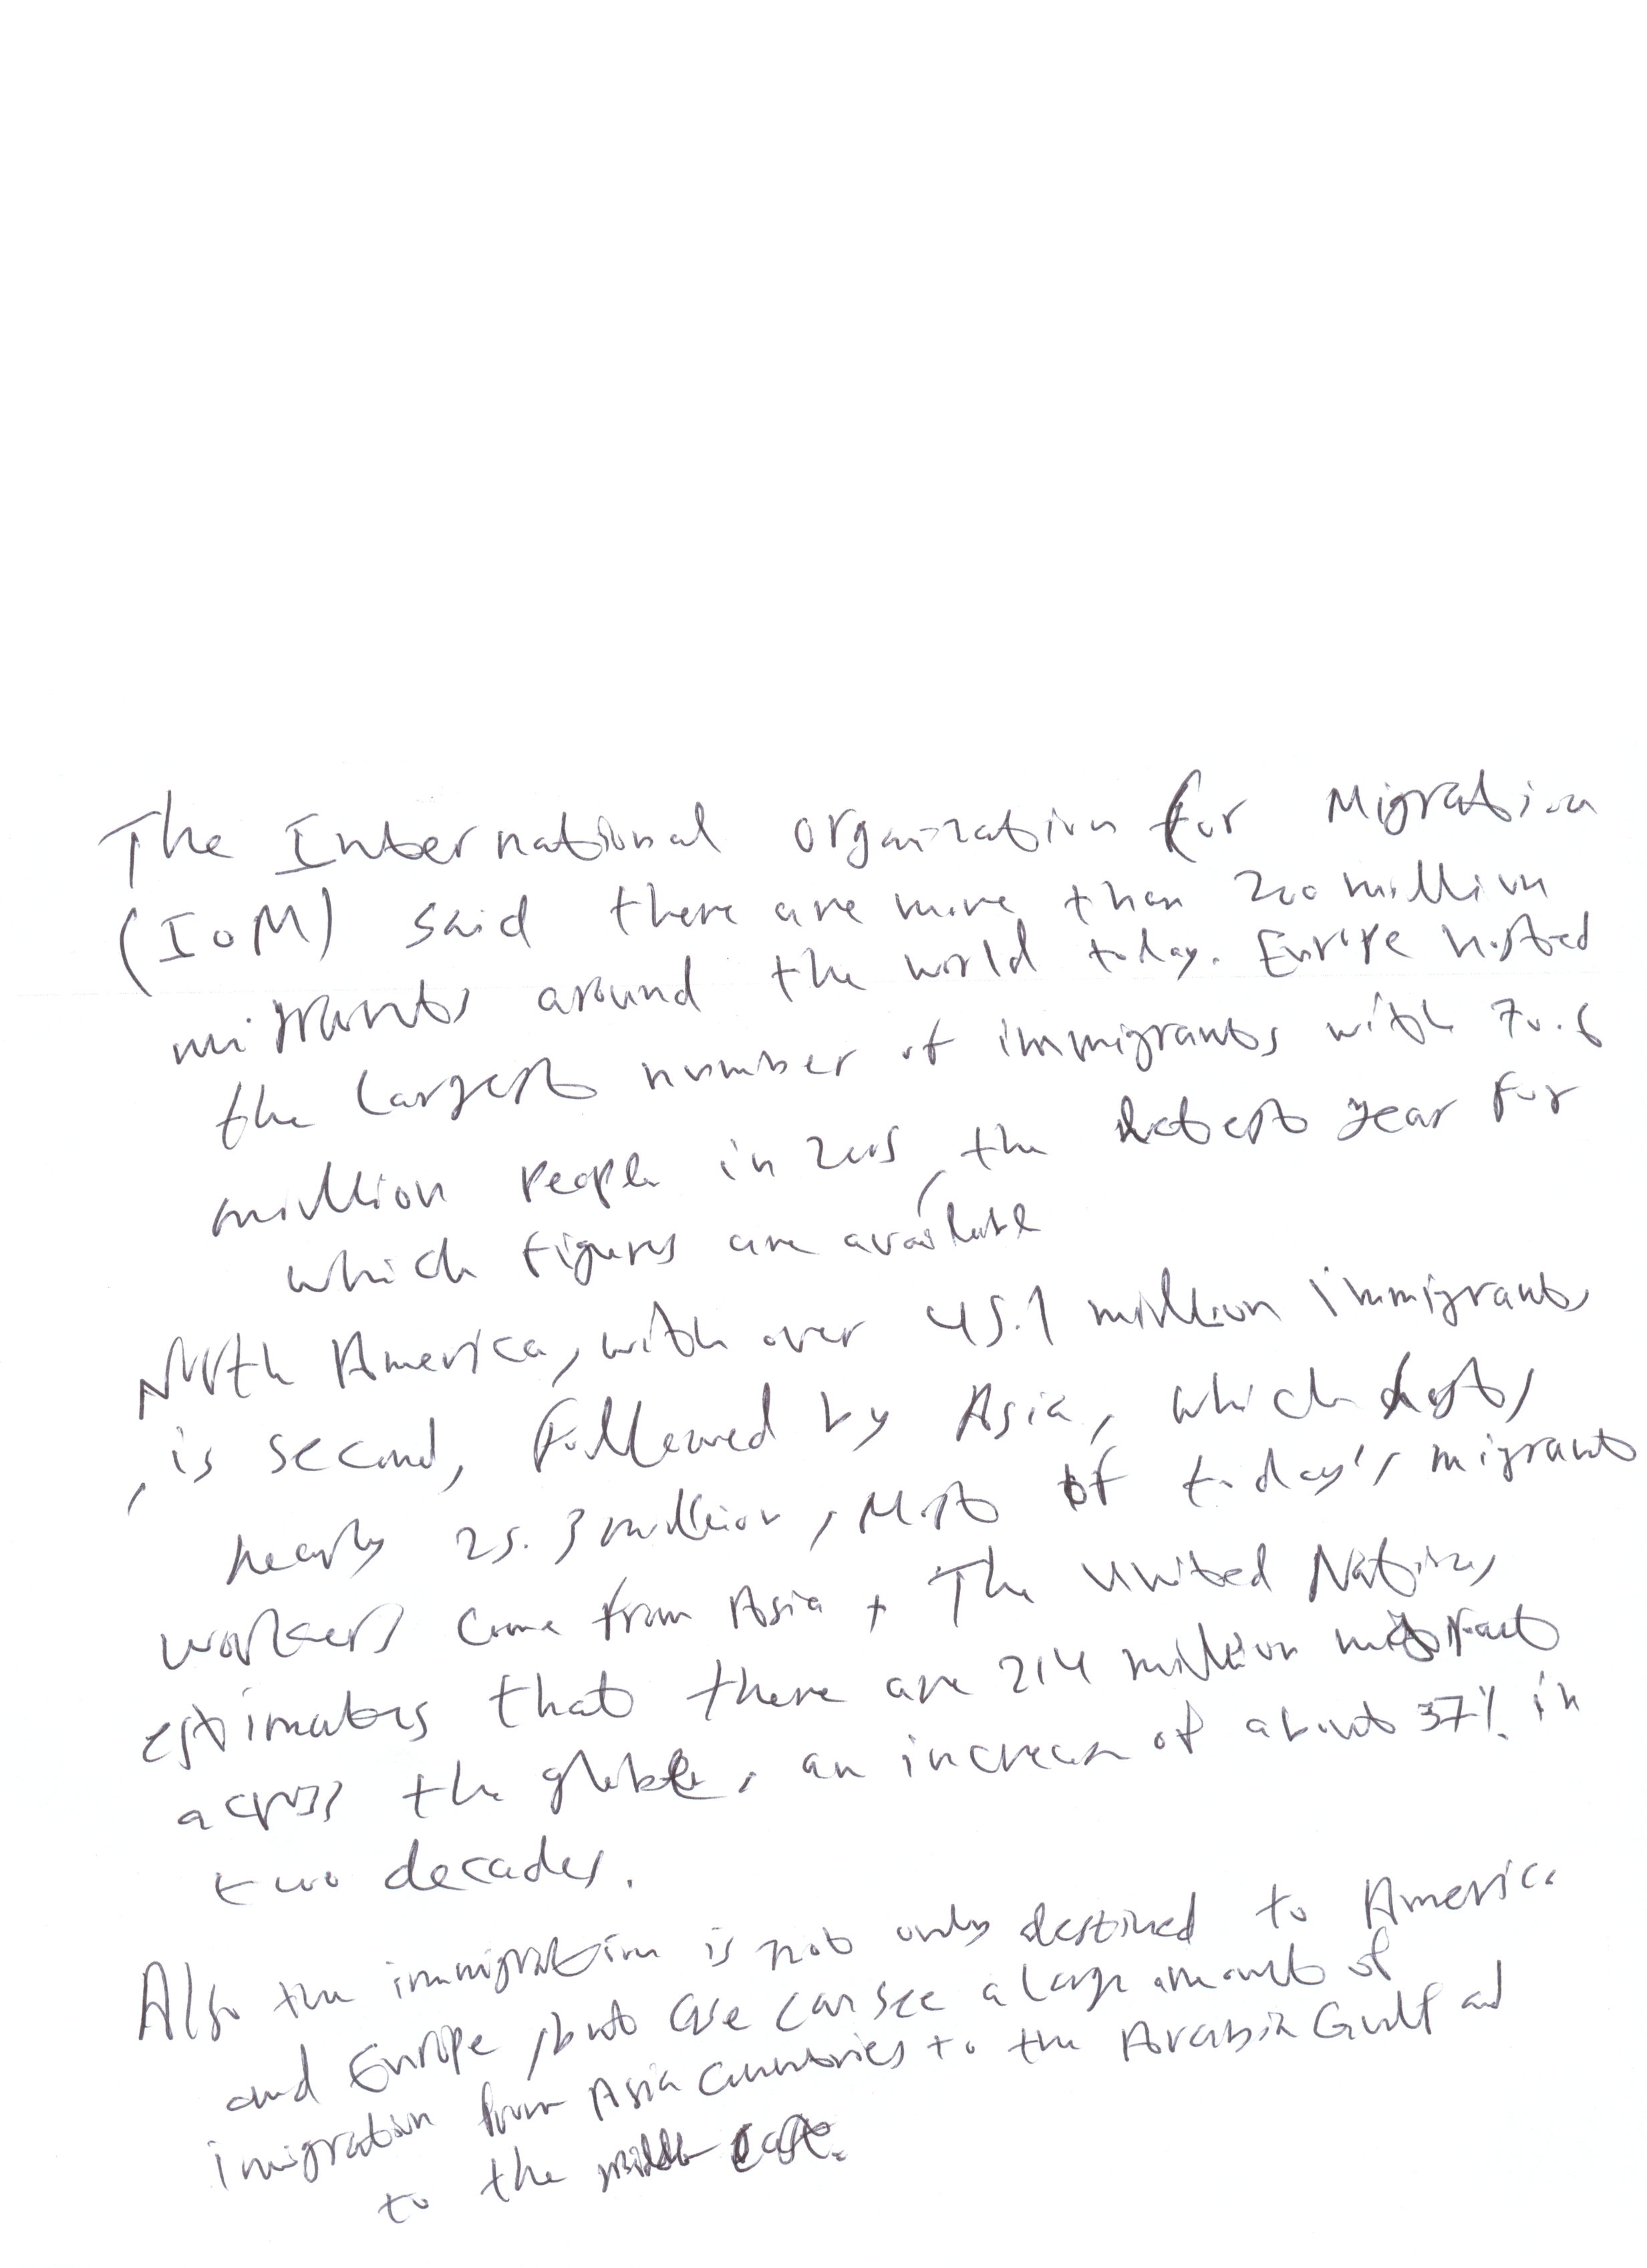 The International Organization for Migration
(IOM) said there are more than 200 million
migrants around the world today. Europe hosted
the largest number of immigrants with 70.6
million people in 2005, the latest year for
which figures are available
North America, with over 45.1 million immigrants
, is second, followed by Asia, which hosts
nearly 25.3 million, Most of today's migrant
workers come from Asia. The United Nations
estimates that there are 214 million migrant
across the globe, an increase of about 37% in
two decades.
Also the immigration is not only destined to America
and Europe, but we can see a large amount of
imigration from Asia Countries to the Arabia Gulf and
to the middle east.